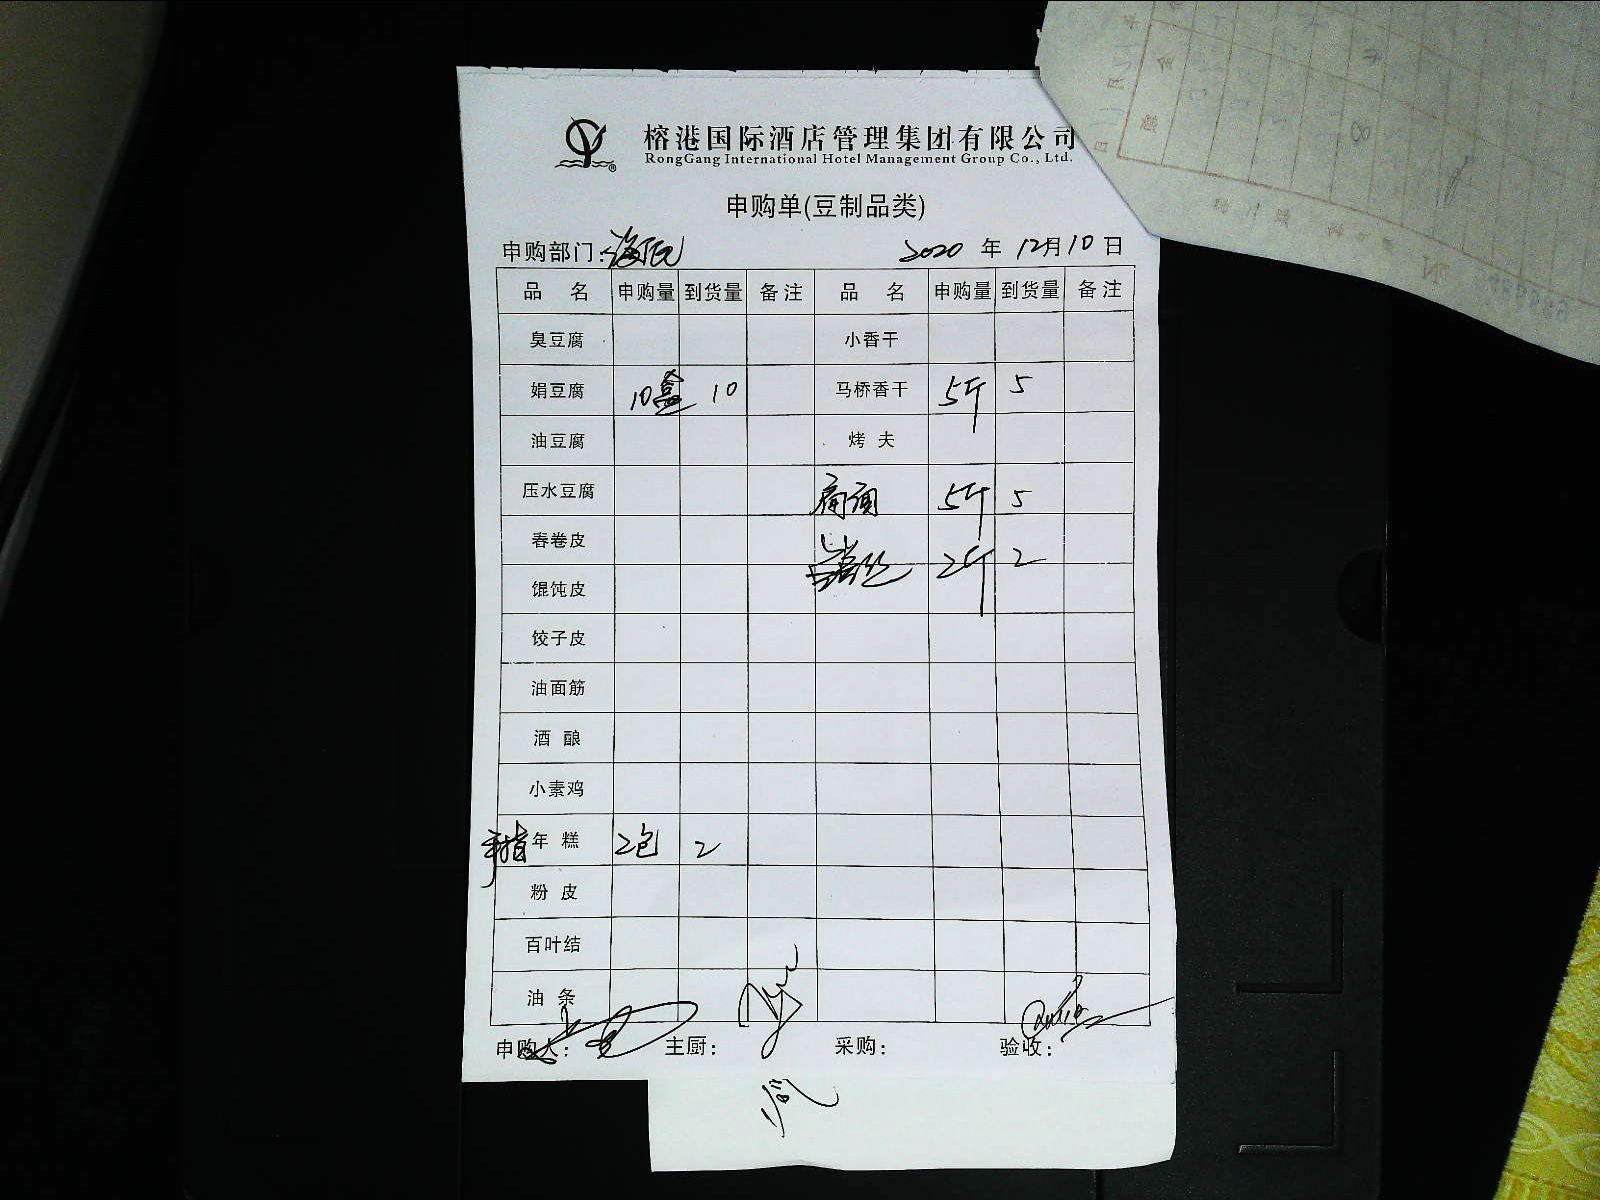 榕港国际酒店管理集团有限公司
RongGang International Hotel Management Group Co., Ltd.
申购单(豆制品类)
申购部门: 2020 年 12月10日
品 名 申购量 到货量 备注 品 名 申购量 到货量 备注
臭豆腐 小香干
娟豆腐 10盒 10 马桥香干 5斤 5
油豆腐 烤 夫
压水豆腐 5斤 5
春卷皮 2斤 2
馄饨皮
饺子皮
油面筋
酒 酿
小素鸡
手指年 糕 2包 2
粉 皮
百叶结
油 条
申购人: 主厨: 采购: 验收: